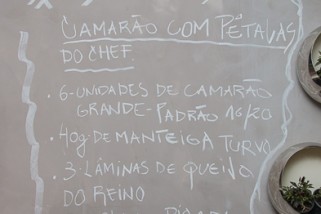 CAMARÃO COM PÉTALAS
DO CHEF
· 6-UNIDADES DE CAMARÃO
GRANDE-PADRÃO 16/20
· 40g DE MANTEIGA TURVO
· 3-LÂMINAS DE QUEIJO
DO REINO